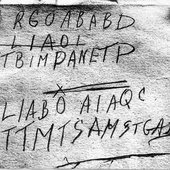 RGOABABD
LIAOI
TBIMPANETP
LIABO AIAQC
TTMTSAMSTGA